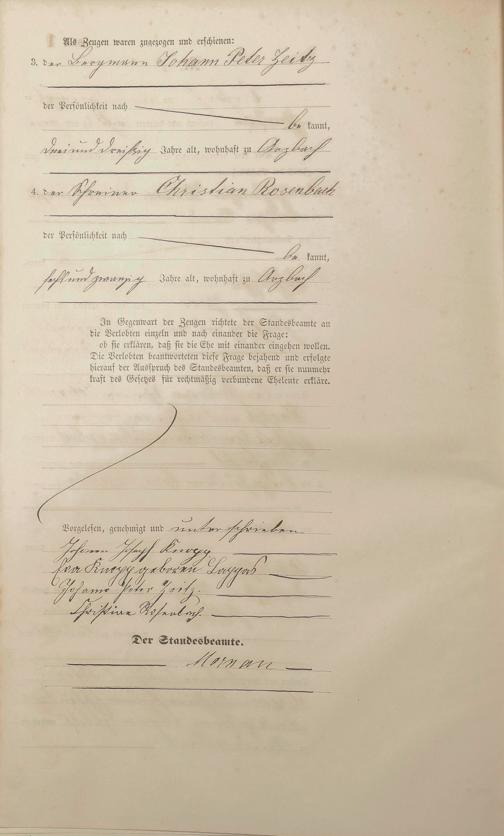 Als Zeugen waren zugezogen und erschienen:
3. der Bergmann Johann Peter Zeitz
der Persönlichkeit nach
be kannt,
dreiunddreißig Jahre alt, wohnhaft zu Arzbach
4. der Schreiner Christian Rosenbach
der Persönlichkeit nach
be kannt,
sechsundzwanzig Jahre alt, wohnhaft zu Arzbach
In Gegenwart der Zeugen richtete der Standesbeamte an
die Verlobten einzeln und nach einander die Frage:
ob sie erklären, daß sie die Ehe mit einander eingehen wollen.
Die Verlobten beantworteten diese Frage bejahend und erfolgte
hierauf der Ausspruch des Standesbeamten, daß er sie nunmehr
kraft des Gesetzes für rechtmäßig verbundene Eheleute erkläre.
Vorgelesen, genehmigt und unterschrieben
Johann Joseph Knopp
Eva Knopp geboren
Johann Peter Zeitz.
Christian Rosenbach.
Der Standesbeamte.